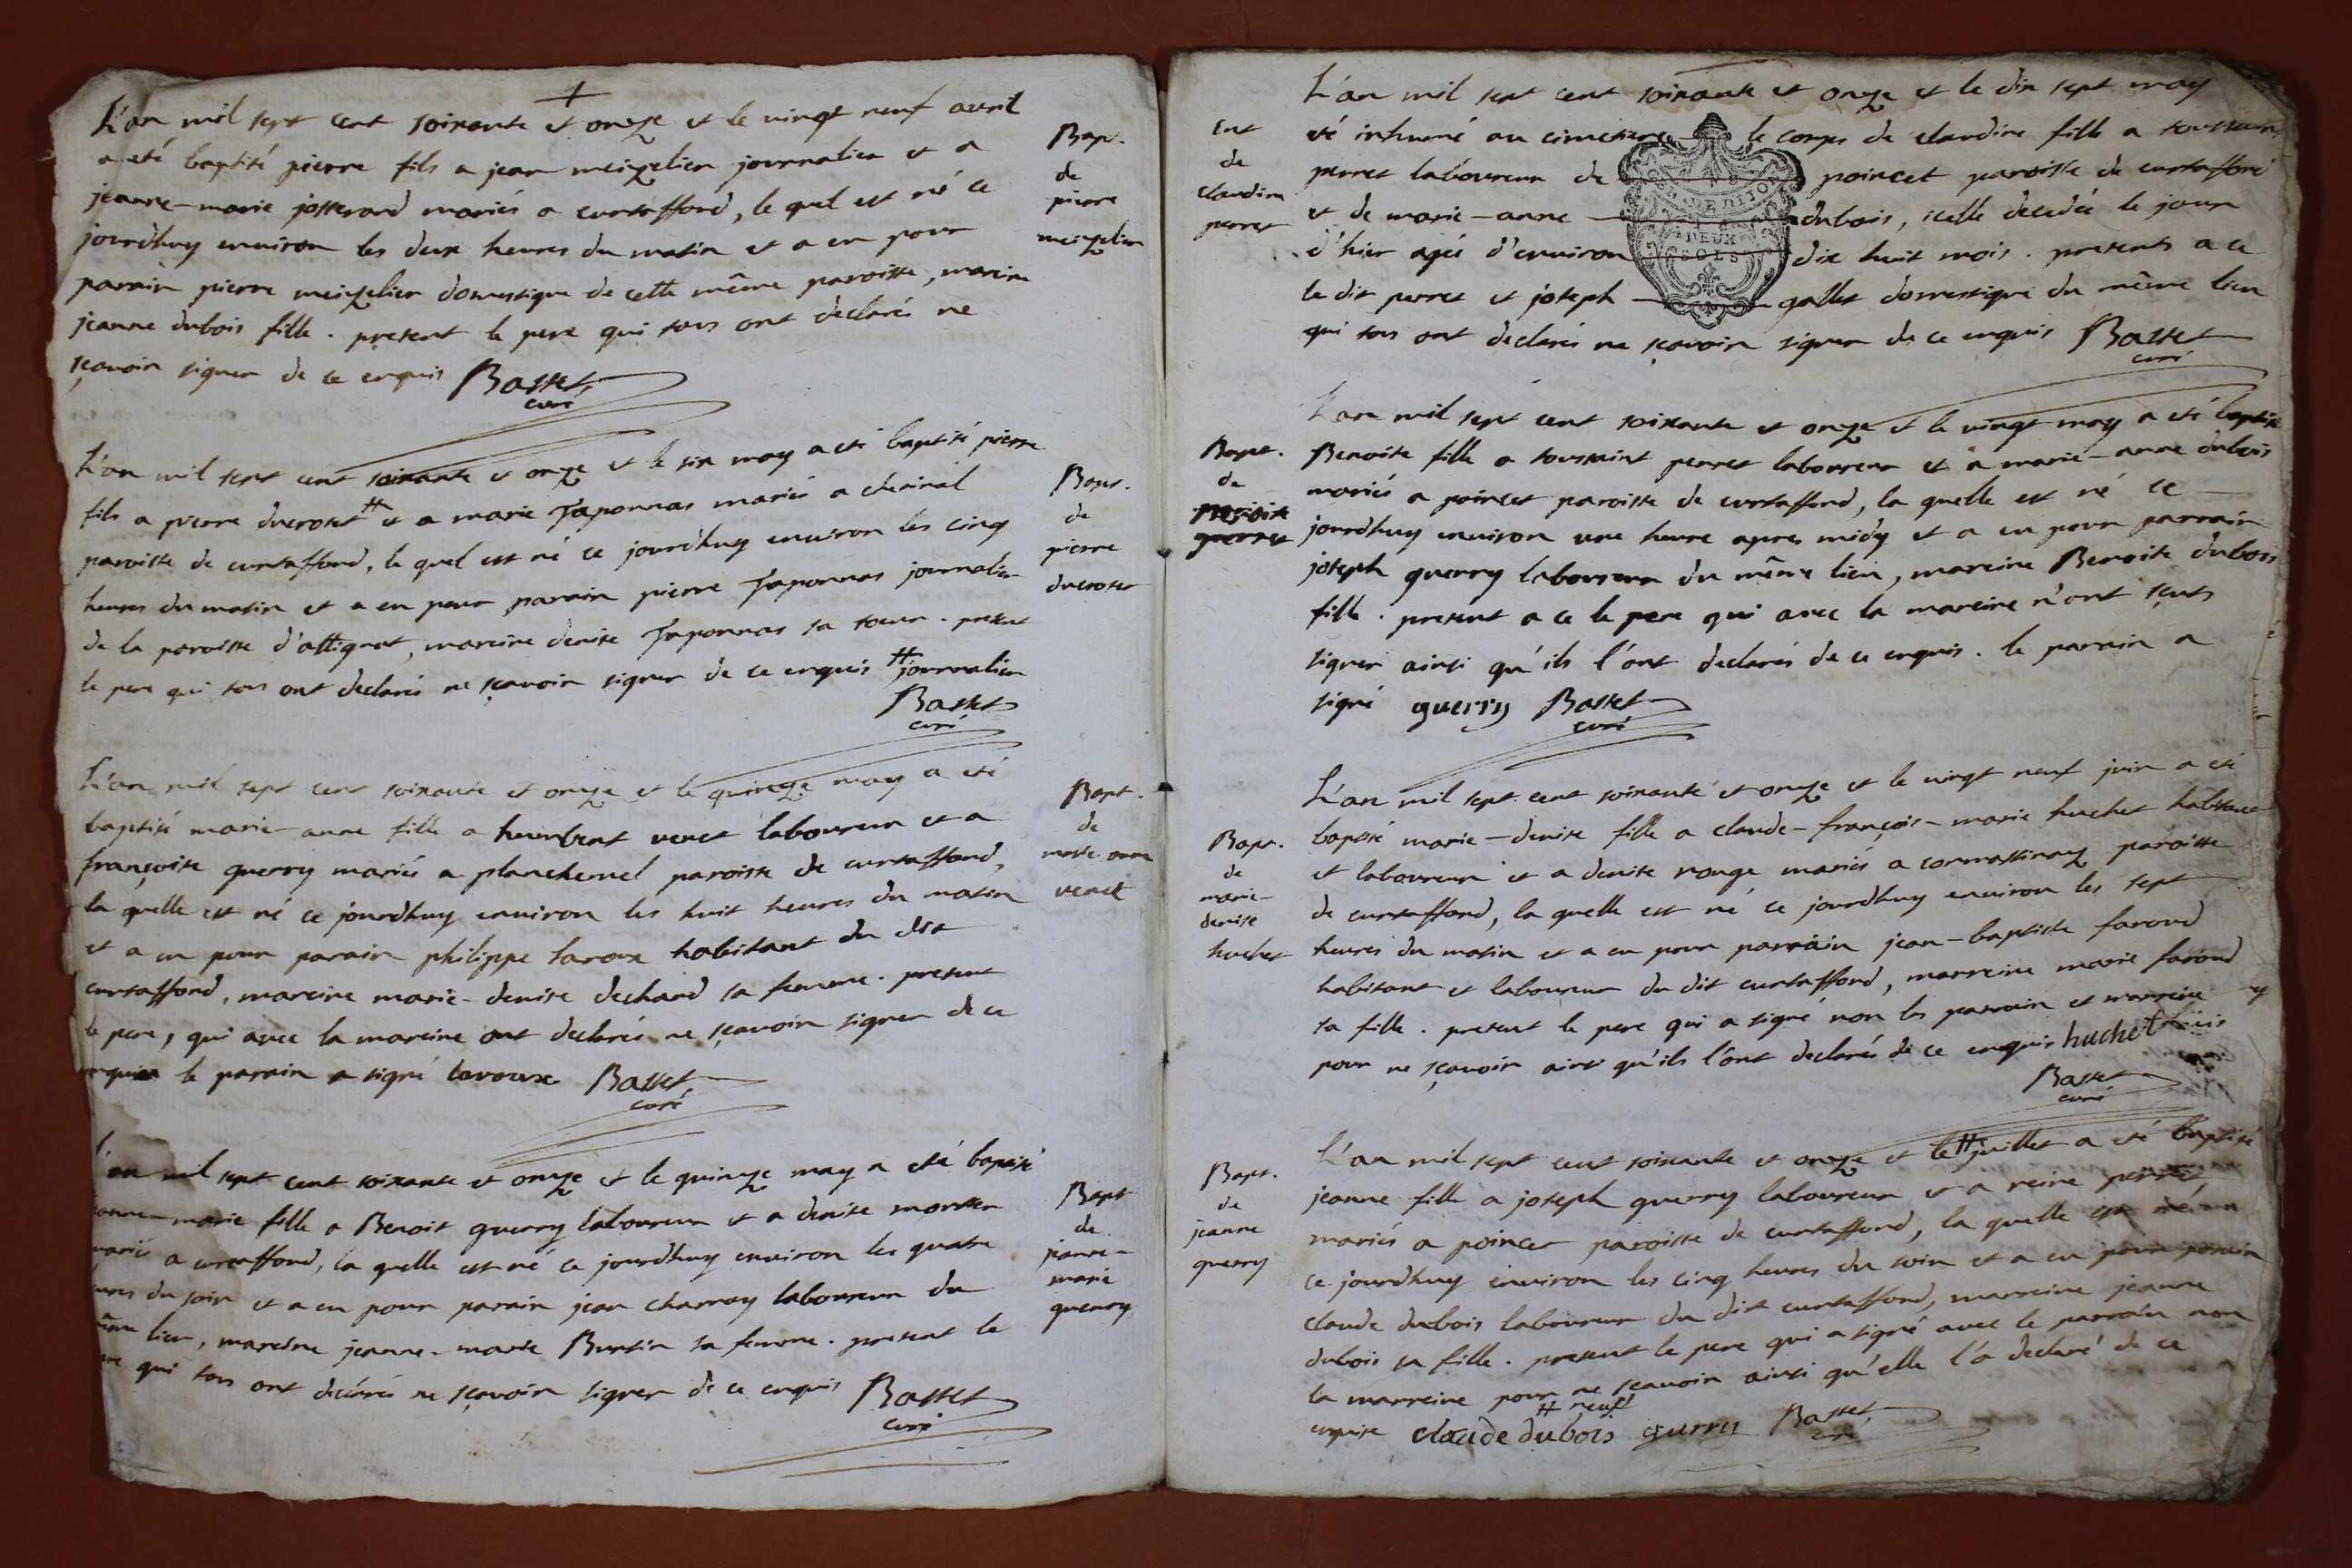 L'an mil sept cent soixante et onze et le vingt neuf avril
a eté baptisé pierre fils a jean meizelier journalier et a
jeanne-marie josserand mariés a curtaffond, le quel est né ce
jourdhuy environ les deux heures du matin et a eu pour
parain pierre meizelier domestique de cette même paroisse, mareine
jeanne dubois fille. present le pere qui tous ont declarés ne
sçavoir signer de ce enquis Basset
curé
Bapt.
de
pierre
meizelier
L'an mil sept cent soixante et onze et le six may a eté baptisé pierre
fils a pierre ducroset # et a marie Taponnas mariés a
paroisse de curtaffond, le quel est né ce jourdhuy environ les cinq
heures du matin et a eu pour parain pierre Taponnas journalier
de la paroisse d'attignat, mareine denise Taponnas sa soeur. present
le pere qui tous ont declarés ne sçavoir signer de ce enquis # journalier
Basset
curé
Bapt.
de
pierre
ducroset
L'an mil sept cent soixante et onze et le quinze may a eté
baptisé marie-anne fille a humbert venet laboureur et a
françoise guerry mariés a planchemel paroisse de curtaffond,
la quelle est né ce jourdhuy environ les huit heures du matin
et a eu pour parain philippe habitant du dit
curtaffond, mareine marie-denise dechand sa femme. present
le pere, qui avec la mareine ont declarés ne sçavoir signer de ce
enquis le parain a signé Basset
curé
Bapt.
de
marie anne
venet
L'an mil sept cent soixante et onze et le quinze may a eté baptisé
jeanne-marie fille a Benoit guerry laboureur et a denise
mariés a curtaffond, la quelle est né ce jourdhuy environ les quatre
heures du soir et a eu pour parain jean charnay laboureur du
même lieu, mareine jeanne-marie Burtin sa femme. present le
pere qui tous ont declarés ne sçavoir signer de ce enquis Basset
curé
Bapt
de
jeanne-
marie
guerry
L'an mil sept cent soixante et onze et le dix sept may
eté inhumé au cimetiere le corps de claudine fille a toussaint
perret laboureur de poincet paroisse de curtaffond
et de marie-anne dubois, icelle decedée le jour
d'hier agée d'environ dix huit mois. presents a ce
le dit perret et joseph gallet domestique du même lieu
qui tous ont declarés ne sçavoir signer de ce enquis Basset
curé
Ent
de
claudine
perret
DEUX
SOLS
L'an mil sept cent soixante et onze et le vingt may a eté baptisé
Benoite fille a toussaint perret laboureur et a marie-anne dubois
mariés a poincet paroisse de curtaffond, la quelle est né ce
jourdhuy environ une heure apres midy et a eu pour parrain
joseph guerry laboureur du même lieu, mareine Benoite dubois
fille. present a ce le pere qui avec la mareine n'ont sçus
signer ainsi qu'ils l'ont declarés de ce enquis. le parain a
signé guerry Basset
curé
Bapt.
de
L'an mil sept cent soixante et onze et le vingt neuf juin a eté
baptisé marie-denise fille a claude-françois-marie huchet habitant
et laboureur et a denise rouge mariés a cormassinay paroisse
de curtaffond, la quelle est né ce jourdhuy environ les sept
heures du matin et a eu pour parrain jean-baptiste farond
habitant et laboureur du dit curtaffond, marreine marie farond
sa fille. present le pere qui a signé non les parrain et marreine
pour ne sçavoir ainsi qu'ils l'ont declarés de ce enquis huchet
Basset
curé
Bapt.
de
marie-
denise
huchet
L'an mil sept cent soixante et onze et le # juillet a eté baptisé
jeanne fille a joseph guerry laboureur et a reine perret
mariés a poincet paroisse de curtaffond, la quelle est né
ce jourdhuy environ les cinq heures du soir et a eu pour parain
claude dubois laboureur du dit curtaffond, marreine jeanne
dubois sa fille. present le pere qui a signé avec le parrain non
la marreine pour ne sçavoir ainsi qu'elle l'a declaré de ce
# neuf
enquise claude dubois guerry Basset
curé
Bapt.
de
jeanne
guerry